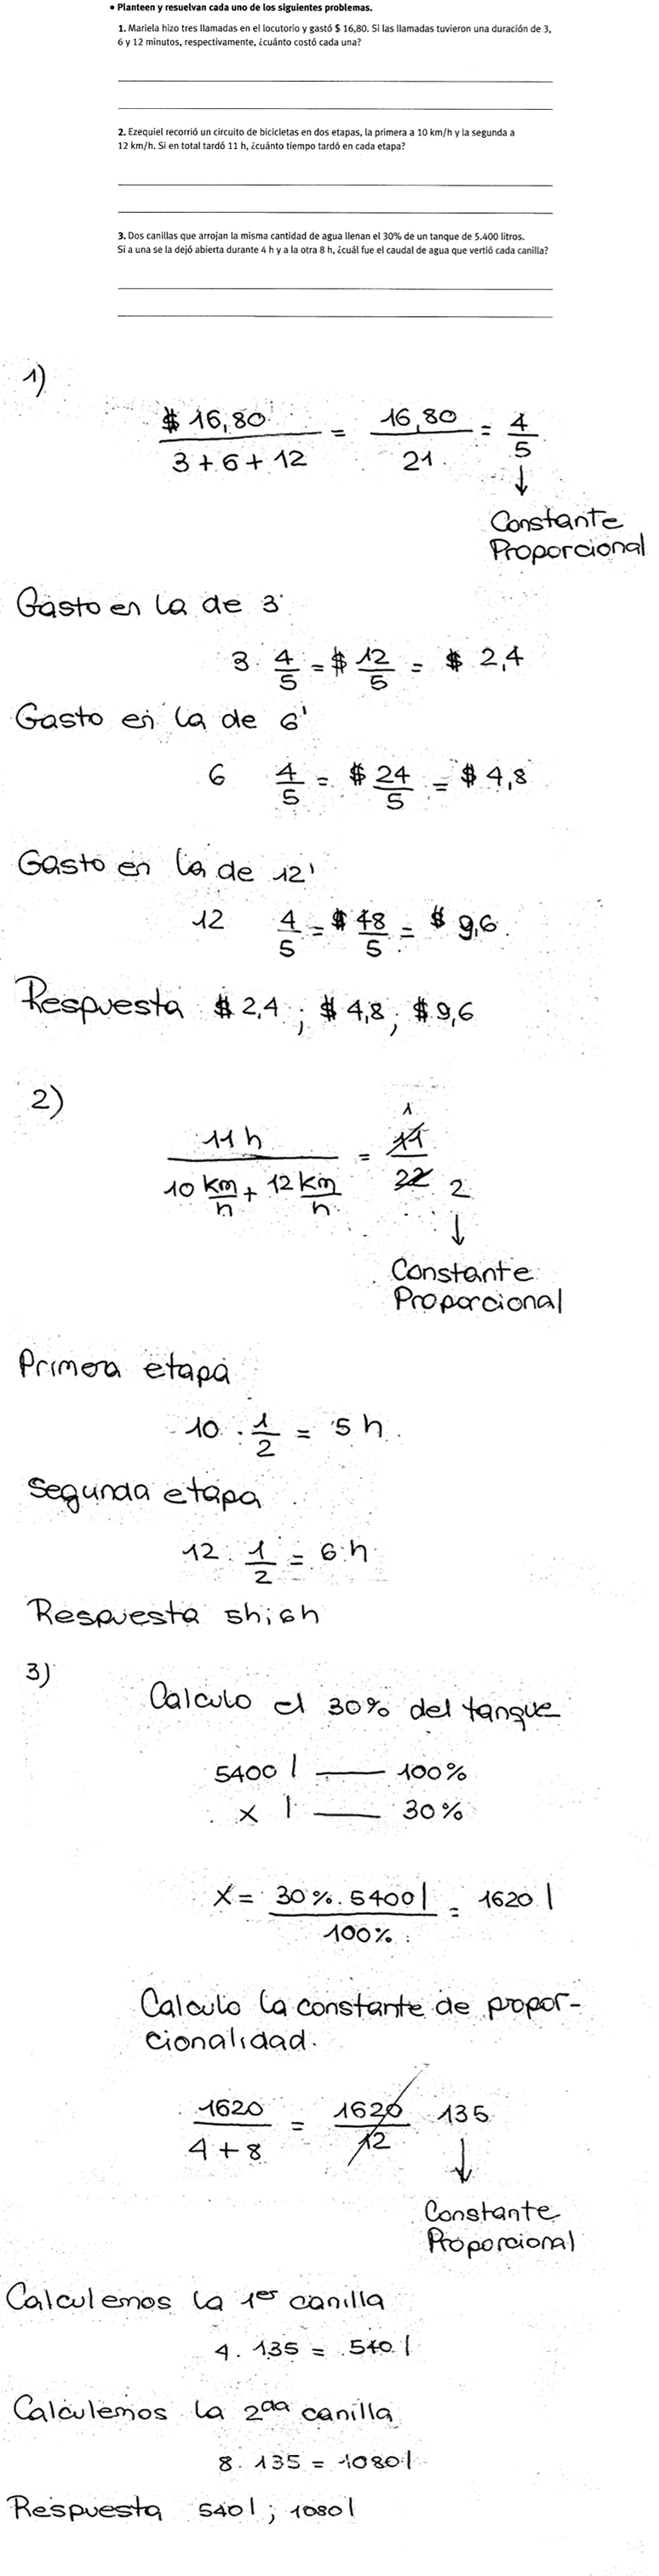 • Planteen y resuelvan cada uno de los siguientes problemas.
1. Mariela hizo tres llamadas en el locutorio y gastó $ 16,80. Si las llamadas tuvieron una duración de 3,
6 y 12 minutos, respectivamente, ¿cuánto costó cada una?
2. Ezequiel recorrió un circuito de bicicletas en dos etapas, la primera a 10 km/h y la segunda a
12 km/h. Si en total tardó 11 h, ¿cuánto tiempo tardó en cada etapa?
3. Dos canillas que arrojan la misma cantidad de agua llenan el 30% de un tanque de 5.400 litros.
Si a una se la dejó abierta durante 4 h y a la otra 8 h, ¿cuál fue el caudal de agua que vertió cada canilla?
1)
$ 16,80 / 3 + 6 + 12 = 16,80 / 21 = 4/5
↓
Constante
Proporcional
Gasto en la de 3'
3 · 4/5 = $ 12/5 = $ 2,4
Gasto en la de 6'
6 4/5 = $ 24/5 = $ 4,8
Gasto en la de 12'
12 4/5 = $ 48/5 = $ 9,6
Respuesta $ 2,4 ; $ 4,8 ; $ 9,6
2)
11 h / 10 km/h + 12 km/h = 11 / 22 1 2
↓
Constante
Proporcional
Primera etapa
10 · 1/2 = 5 h
Segunda etapa
12 · 1/2 = 6 h
Respuesta 5h ; 6h
3)
Calculo el 30% del tanque
5400 l — 100%
x l — 30%
x = 30% . 5400 l / 100% = 1620 l
Calculo la constante de propor-
cionalidad.
1620 / 4 + 8 = 1620 / 12 135
↓
Constante
Proporcional
Calculemos la 1er canilla
4 . 135 = 540 l
Calculemos la 2da canilla
8 . 135 = 1080 l
Respuesta 540 l ; 1080 l